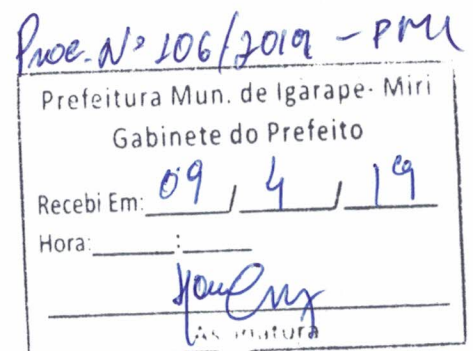 Proc. Nº 106/2019 - PMI
Prefeitura Mun. de Igarape- Miri
Gabinete do Prefeito
Recebi Em: 09 / 4 / 19
Hora:____:____
Assinatura